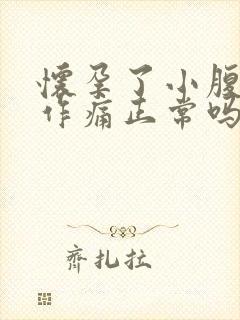 懷孕了小腹
作痛正常吗
齊扎拉